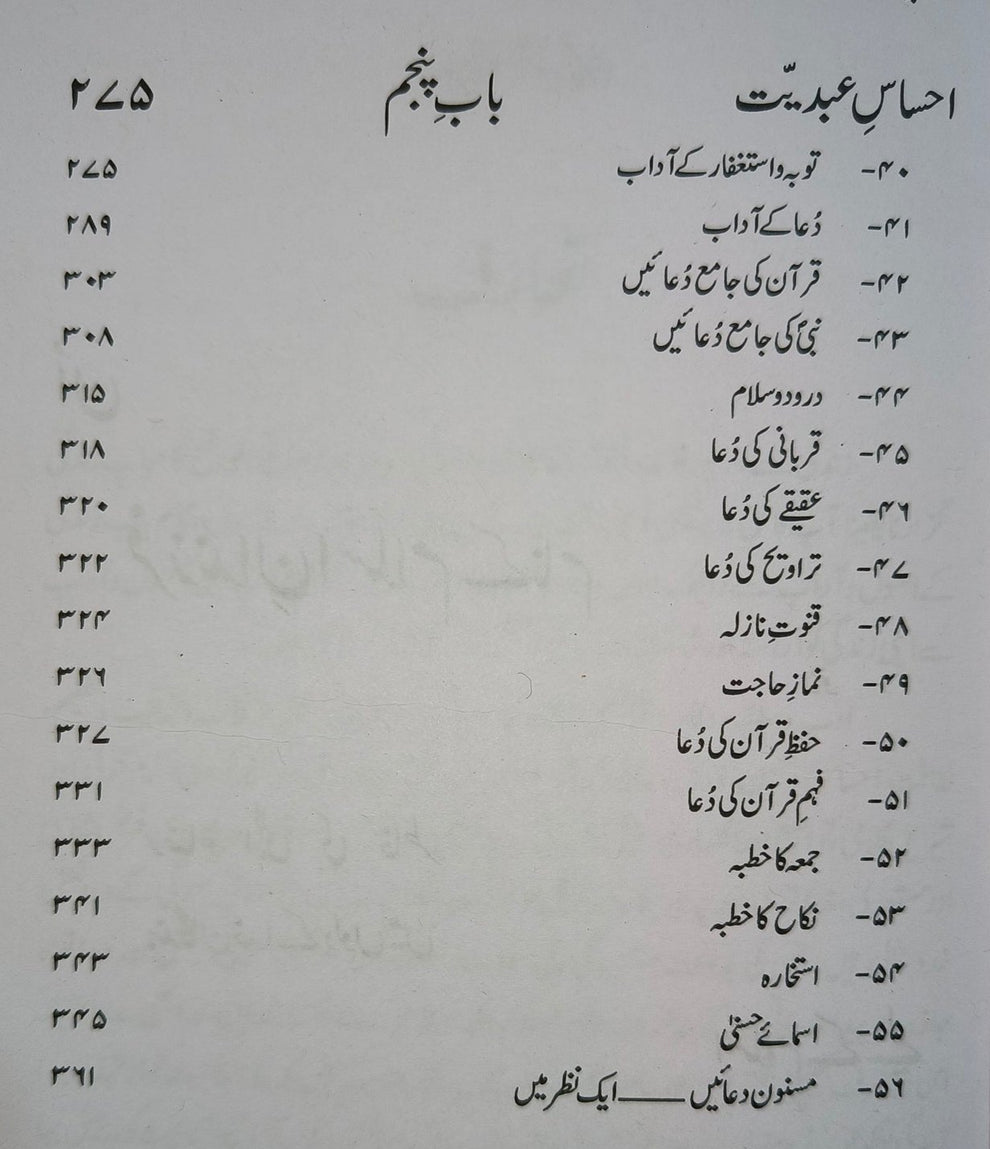 احساسِ عبدیّت بابِ پنجم ۲۷۵
۴۰- توبہ و استغفار کے آداب ۲۷۵
۴۱- دُعا کے آداب ۲۸۹
۴۲- قرآن کی جامع دُعائیں ۳۰۳
۴۳- نبیؐ کی جامع دُعائیں ۳۰۸
۴۴- درود و سلام ۳۱۵
۴۵- قربانی کی دُعا ۳۱۸
۴۶- عقیقے کی دُعا ۳۲۰
۴۷- تراویح کی دُعا ۳۲۲
۴۸- قنوتِ نازلہ ۳۲۴
۴۹- نمازِ حاجت ۳۲۶
۵۰- حفظِ قرآن کی دُعا ۳۲۷
۵۱- فہمِ قرآن کی دُعا ۳۳۱
۵۲- جمعہ کا خطبہ ۳۳۳
۵۳- نکاح کا خطبہ ۳۴۱
۵۴- استخارہ ۳۴۳
۵۵- اسمائے حسنیٰ ۳۴۵
۵۶- مسنون دعائیں ــــــ ایک نظر میں ۳۶۱